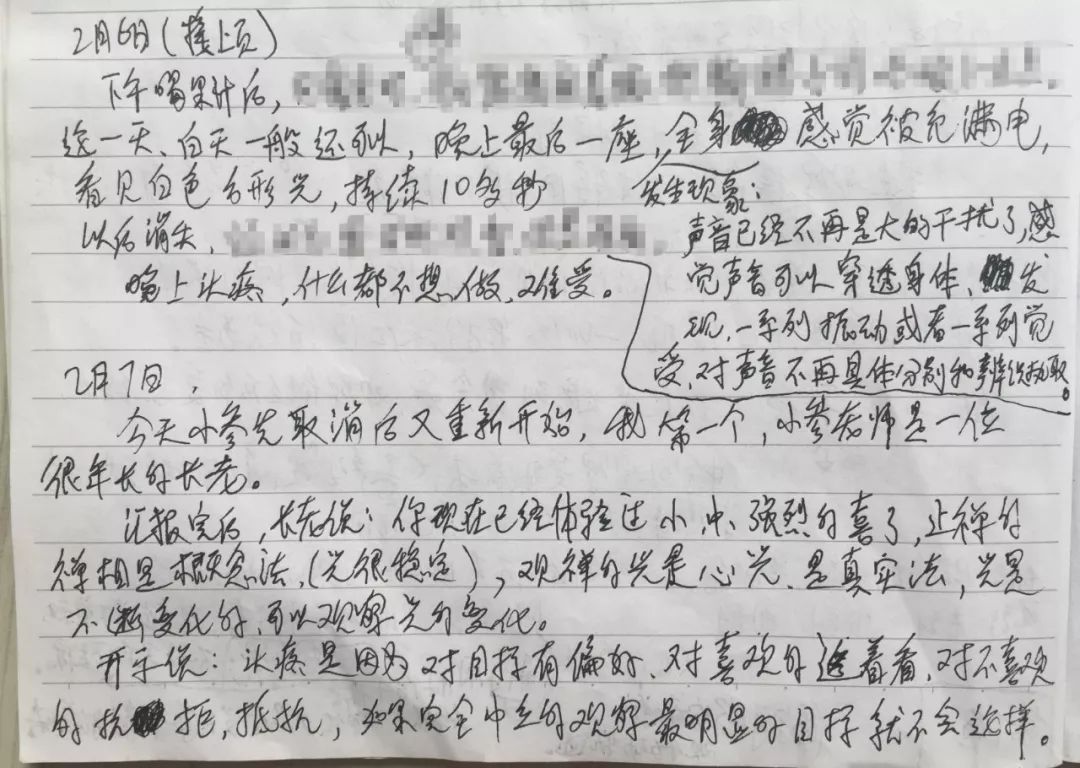 2月6日（接上页）
下午喝果汁后，
这一天、白天一般还可以，晚上最后一座，全身感觉被充满电，
看见白色方形光，持续10多秒
以后消失，
晚上头疼，什么都不想做，又难受。
发生现象：
声音已经不再是大的干扰了，感
觉声音可以穿透身体、发
现，一系列振动或者一系列觉
受，对声音不再具体分别和辨识
2月7日，
今天小参先取消后又重新开始，我第一个，小参老师是一位
很年长的长老。
汇报完后，长老说：你现在已经体验过小中、强烈的喜了，止禅的
禅相是概念法，（光很稳定），观禅的光是心光、是真实法，光是
不断变化的、可以观察光的变化。
开示说：头疼是因为对目标有偏好、对喜欢的追着看，对不喜欢
的抗拒，抵抗，如果完全中立的观察最明显的目标就不会这样。